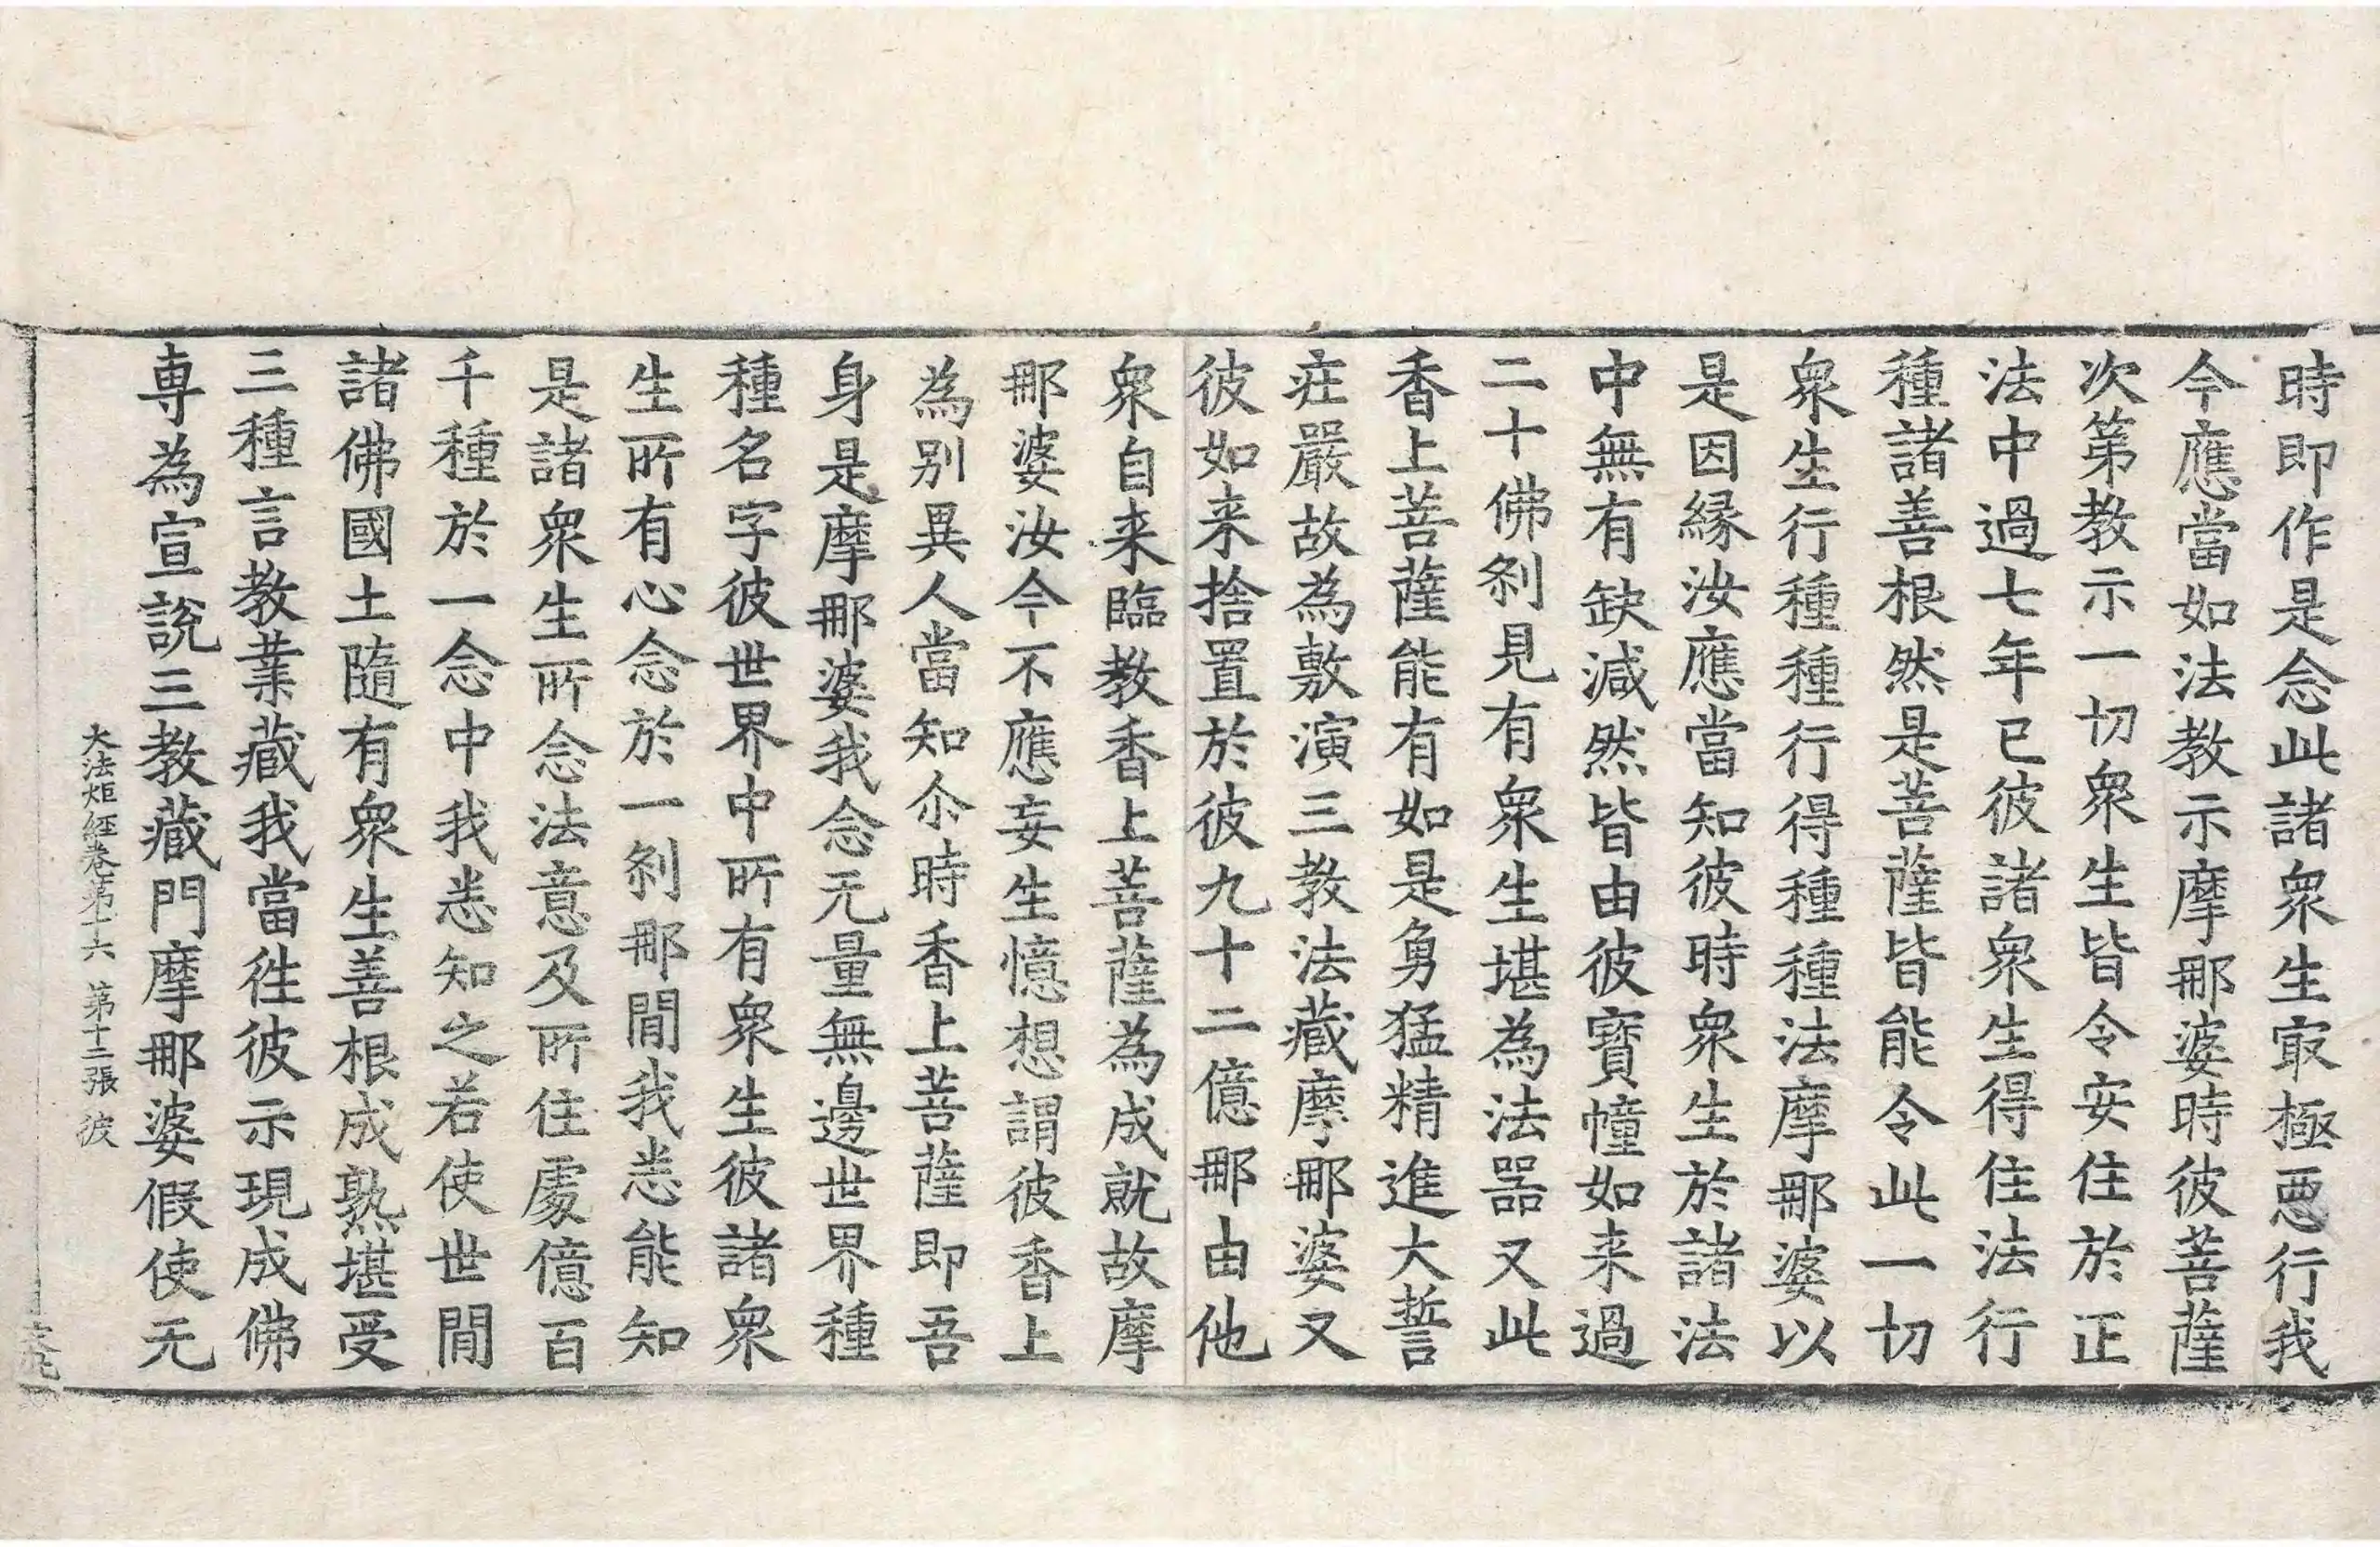 時即作是念此諸衆生冣極惡行我
今應當如法教示摩那婆時彼菩薩
次第教示一切衆生皆令安住於正
法中過七年已彼諸衆生得住法行
種諸善根然是菩薩皆能令此一切
衆生行種種行得種種法摩那婆以
是因緣汝應當知彼時衆生於諸法
中無有缺減然皆由彼寶幢如来過
二十佛刹見有衆生堪為法器又此
香上菩薩能有如是勇猛精進大誓
莊嚴故為敷演三教法藏摩那婆又
彼如来捨置於彼九十二億那由他
衆自来臨教香上菩薩為成就故摩
那婆汝今不應妄生憶想謂彼香上
為別異人當知尒時香上菩薩即吾
身是摩那婆我念无量無邊世界種
種名字彼世界中所有衆生彼諸衆
生所有心念於一刹那間我悉能知
是諸衆生所念法意及所住處億百
千種於一念中我悉知之若使世間
諸佛國土隨有衆生善根成熟堪受
三種言教業藏我當往彼示現成佛
專為宣說三教藏門摩那婆假使无
大法炬經卷第十六 第十二張 彼